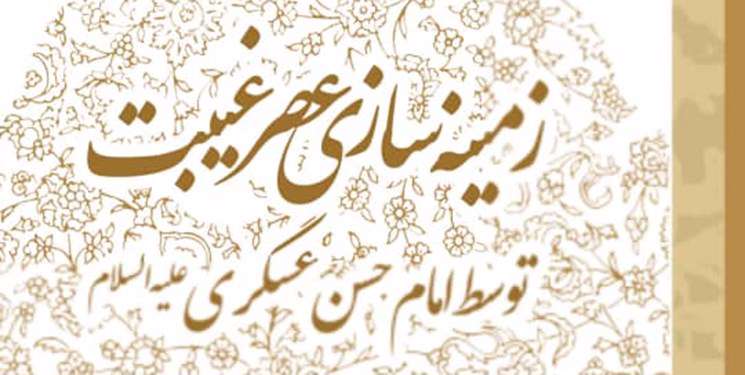 زمینه سازی عصر غیبت
توسط امام حسن عسکری علیه السلام